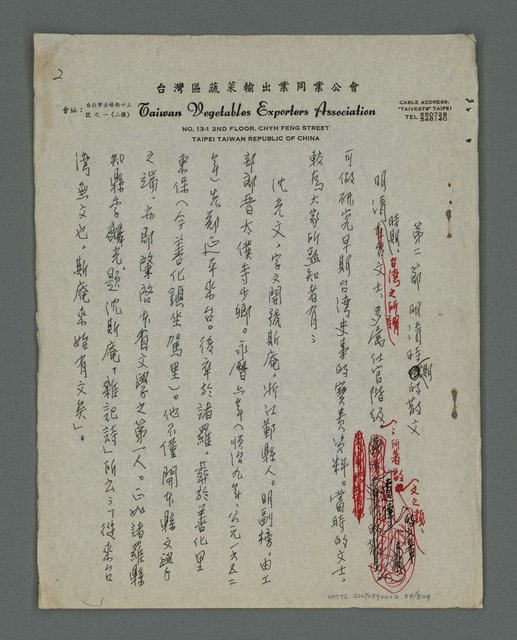 2
台灣區蔬菜輸出業同業公會
會址：台北市赤峰街十三號之一（二樓）
Taiwan Vegetables Exporters Association
NO. 13-1 2ND FLOOR, CHYH FENG STREET
TAIPEI TAIWAN REPUBLIC OF CHINA
CABLE ADDRESS:
"TAIVEGTS" TAIPEI
TEL 550729
548140
第二節 明清時期的散文
明清時期，台灣之所謂文士，多屬仕宦階級，所著散文之類，
可做研究早期台灣史事的寶貴資料。當時的文士，
較為大家所熟知者有：
沈光文，字文開號斯庵，浙江鄞縣人。明副榜，由工
部郎晉太僕寺少卿。永曆六年（順治九年，公元一六五二
年）先鄭延平來台。後卒於諸羅，葬於善化里
東保（今善化鎮坐駕里）。他不僅開本縣文學
之端，亦即肇啓本省文學之第一人。正如諸羅縣
知縣季麟光題沈斯庵「雜記詩」所云：「從來台
灣無文也，斯庵來始有文矣」。
NMTL 20070590002 54/509